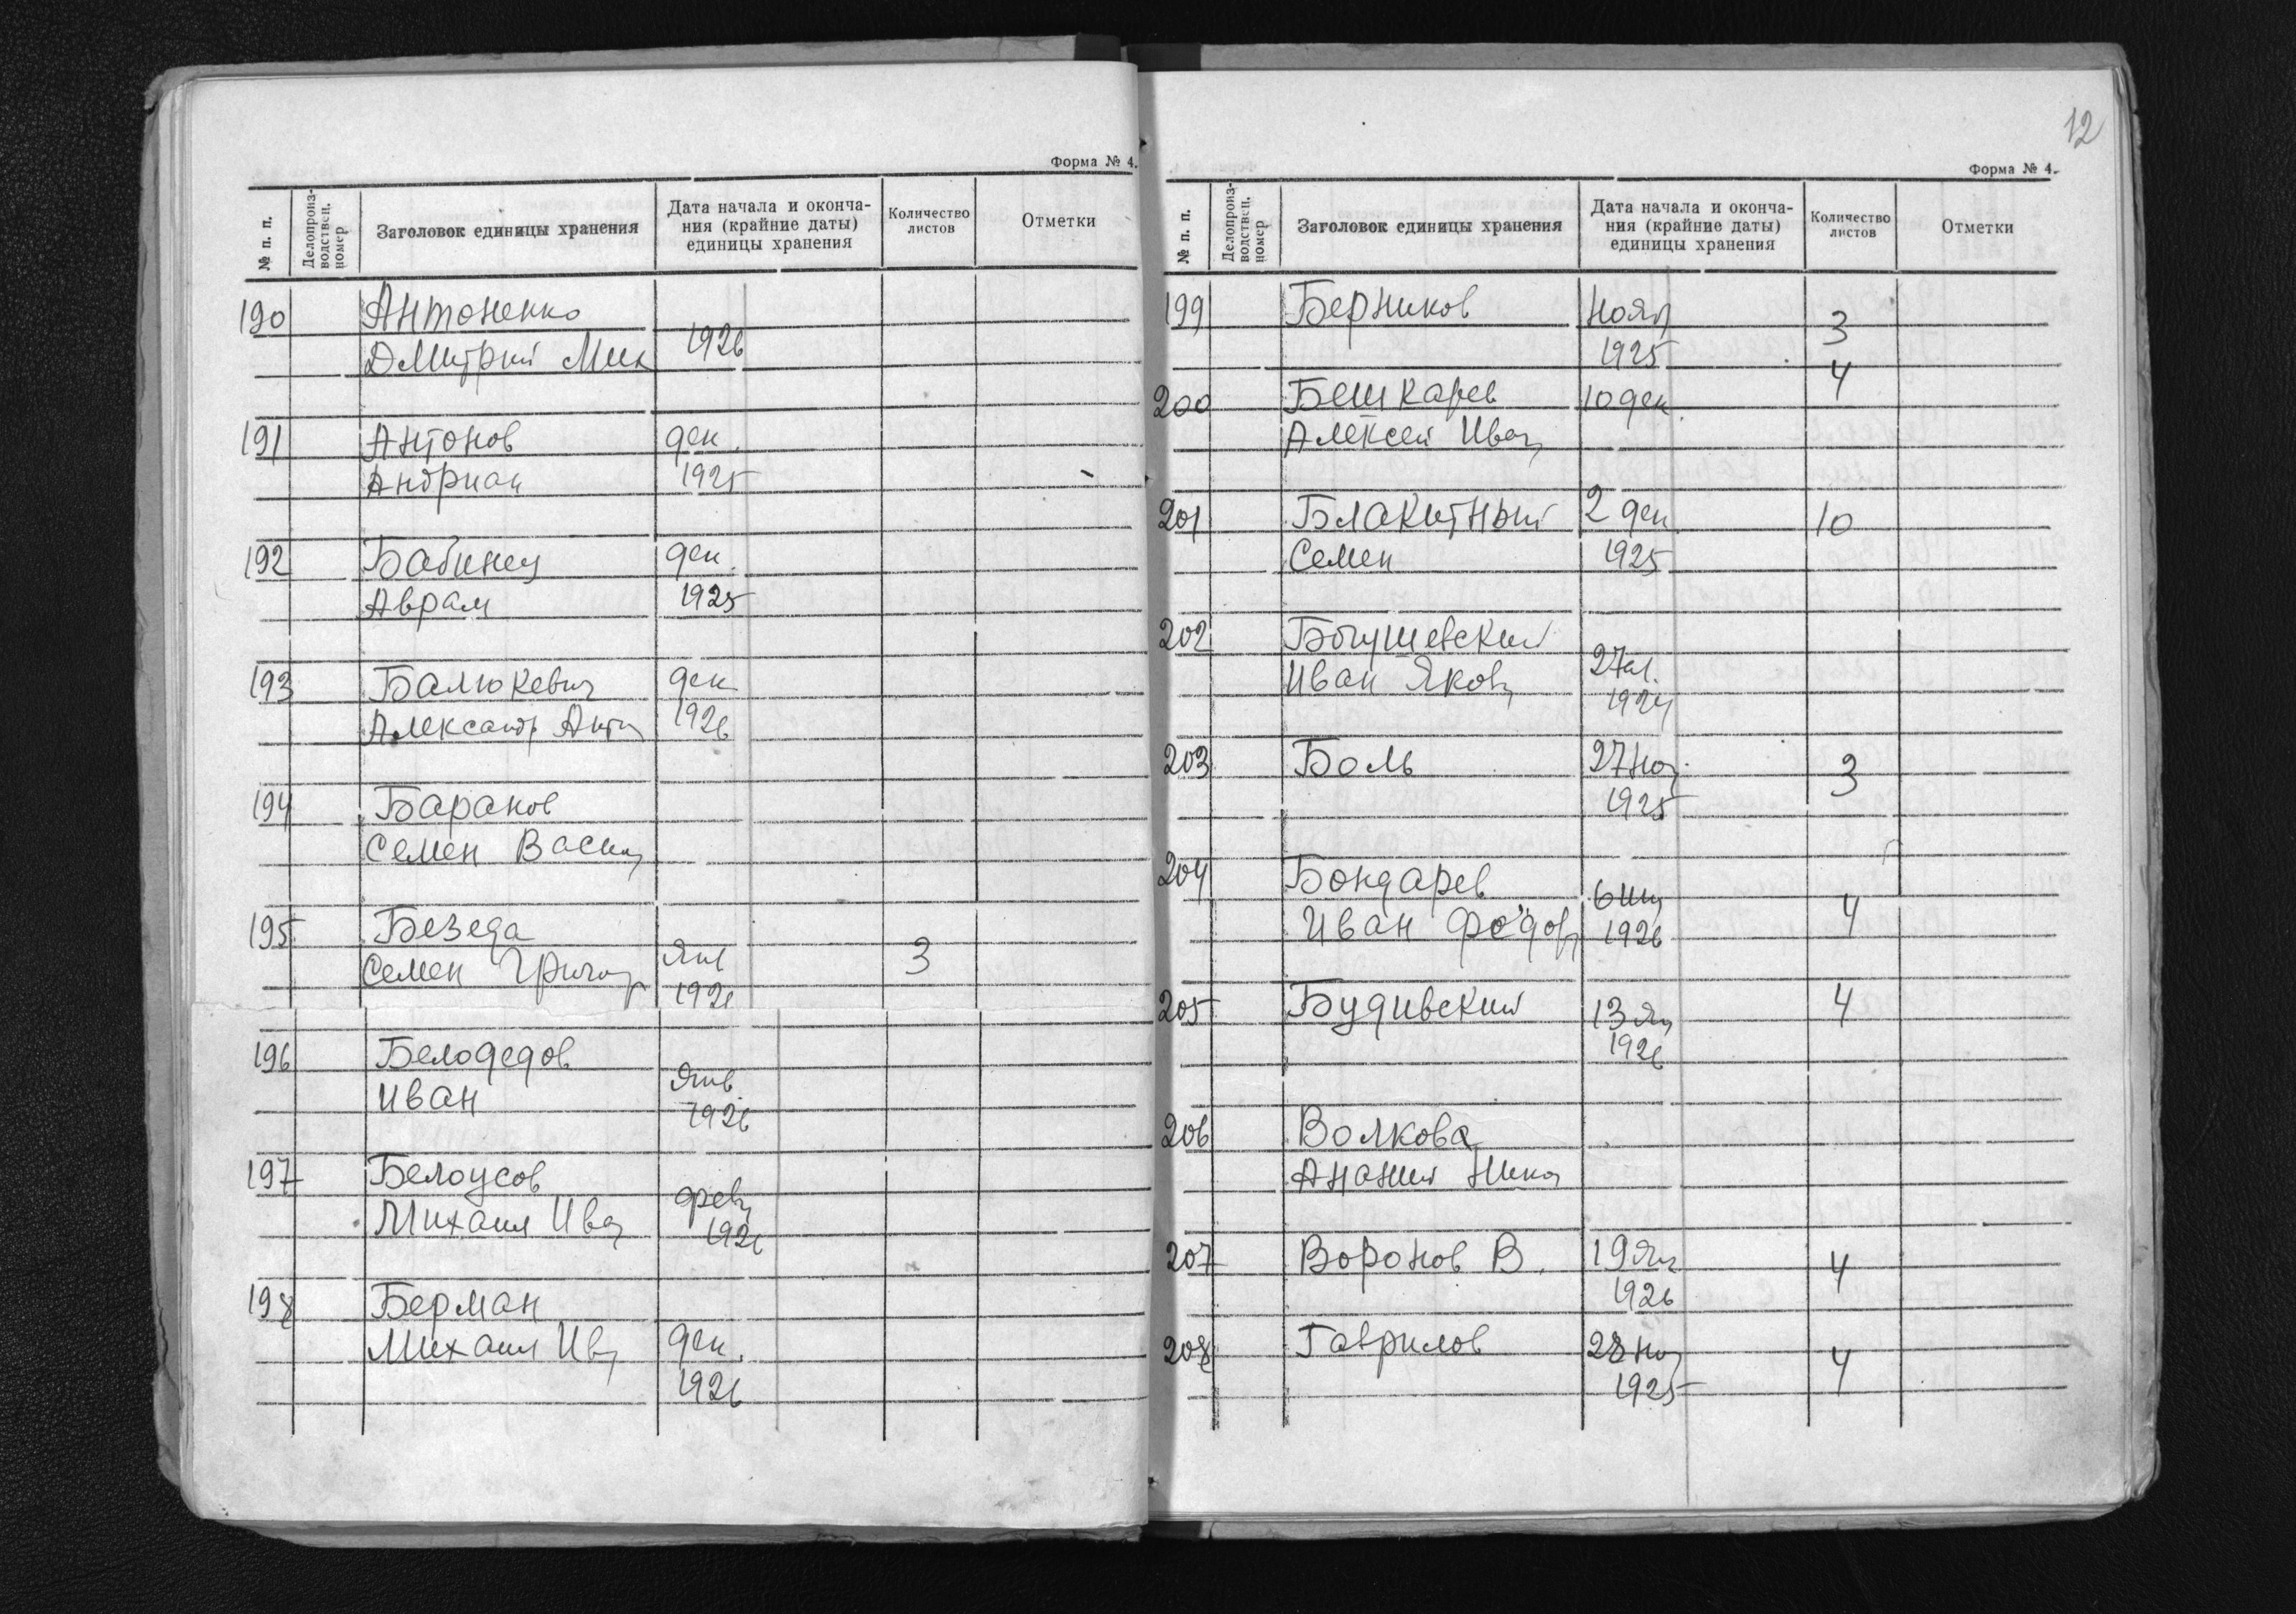 Форма № 4.
№ п. п.
Делопроиз-
водствен.
номер
Заголовок единицы хранения
Дата начала и оконча-
ния (крайние даты)
единицы хранения
Количество
листов
Отметки
190 Антоненко
Дмитрий Мих 1926
191 Антонов ден.
Андриан 1925
192 Бабинец ден.
Аврам 1925
193 Балюкевич ден
Александр Ант 1926
194 Баранов
Семен Васил
195 Безеда
Семен Григор Янв 3
1926
196 Белодедов
Иван Янв
1926
197 Белоусов
Михаил Ива фев
1926
198 Берман
Михаил Ив ден.
1926
12
Форма № 4.
№ п. п.
Делопроиз-
водствен.
номер
Заголовок единицы хранения
Дата начала и оконча-
ния (крайние даты)
единицы хранения
Количество
листов
Отметки
199 Берников Нояб 3
1925
200 Бешкарев 10 ден 4
Алексей Иван
201 Блакитный 2 ден 10
Семен 1925
202 Богушевский
Иван Яков 27
1924
203 Боль 27 ноя. 3
1925
204 Бондарев
Иван Федор 6 4
1926
205 Будивский 13 Ян 4
1926
206 Волкова
Анания Ника
207 Воронов В. 19 Ян 4
1926
208 Гаврилов 28 ноя 4
1925